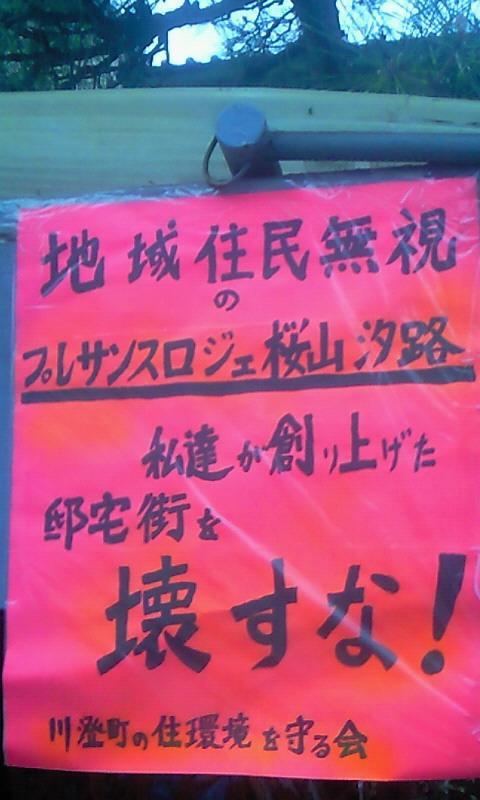 地域住民無視
の
プレサンスロジェ桜山汐路
私達が創り上げた
邸宅街を
壊すな!
川澄町の住環境を守る会